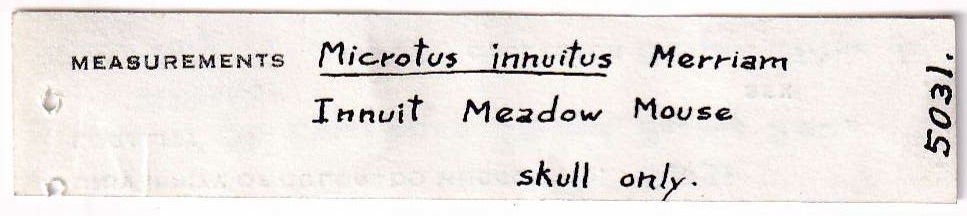 MEASUREMENTS Microtus innuitus Merriam
Innuit Meadow Mouse
skull only.
5031.